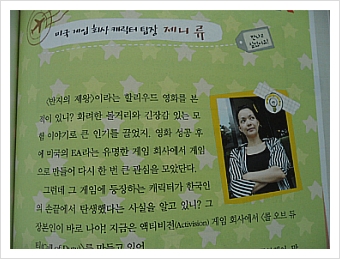 미국 게임 회사 캐릭터 팀장 제니 류
만나고
싶었어요!
《반지의 제왕》이라는 할리우드 영화를 본
적이 있니? 화려한 볼거리와 긴장감 있는 모
험 이야기로 큰 인기를 끌었지. 영화 성공 후
에 미국의 EA라는 유명한 게임 회사에서 게임
으로 만들어 다시 한 번 큰 관심을 모았단다.
그런데 그 게임에 등장하는 캐릭터가 한국인
의 손끝에서 탄생했다는 사실을 알고 있니? 그
장본인이 바로 나야! 지금은 액티비전(Activision) 게임 회사에서 《콜 오브 듀
티(Call of Duty)》를 만들고 있어.